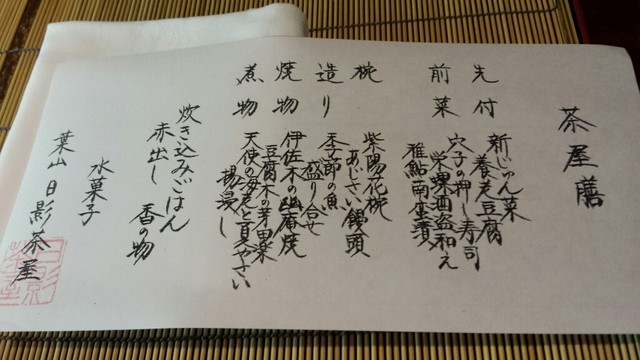 茶屋膳
先付 新じゅん菜
養老豆腐
前菜 穴子の押し寿司
栄螺酒盗和え
稚鮎南蛮漬
椀 紫陽花椀
あじさい饅頭
造り 季節の魚
盛り合せ
焼物 伊佐木の幽庵焼
豆腐木の芽田楽
煮物 天使の海老と夏やさい
揚浸し
炊き込みごはん
赤出し 香の物
水菓子
葉山 日影茶屋